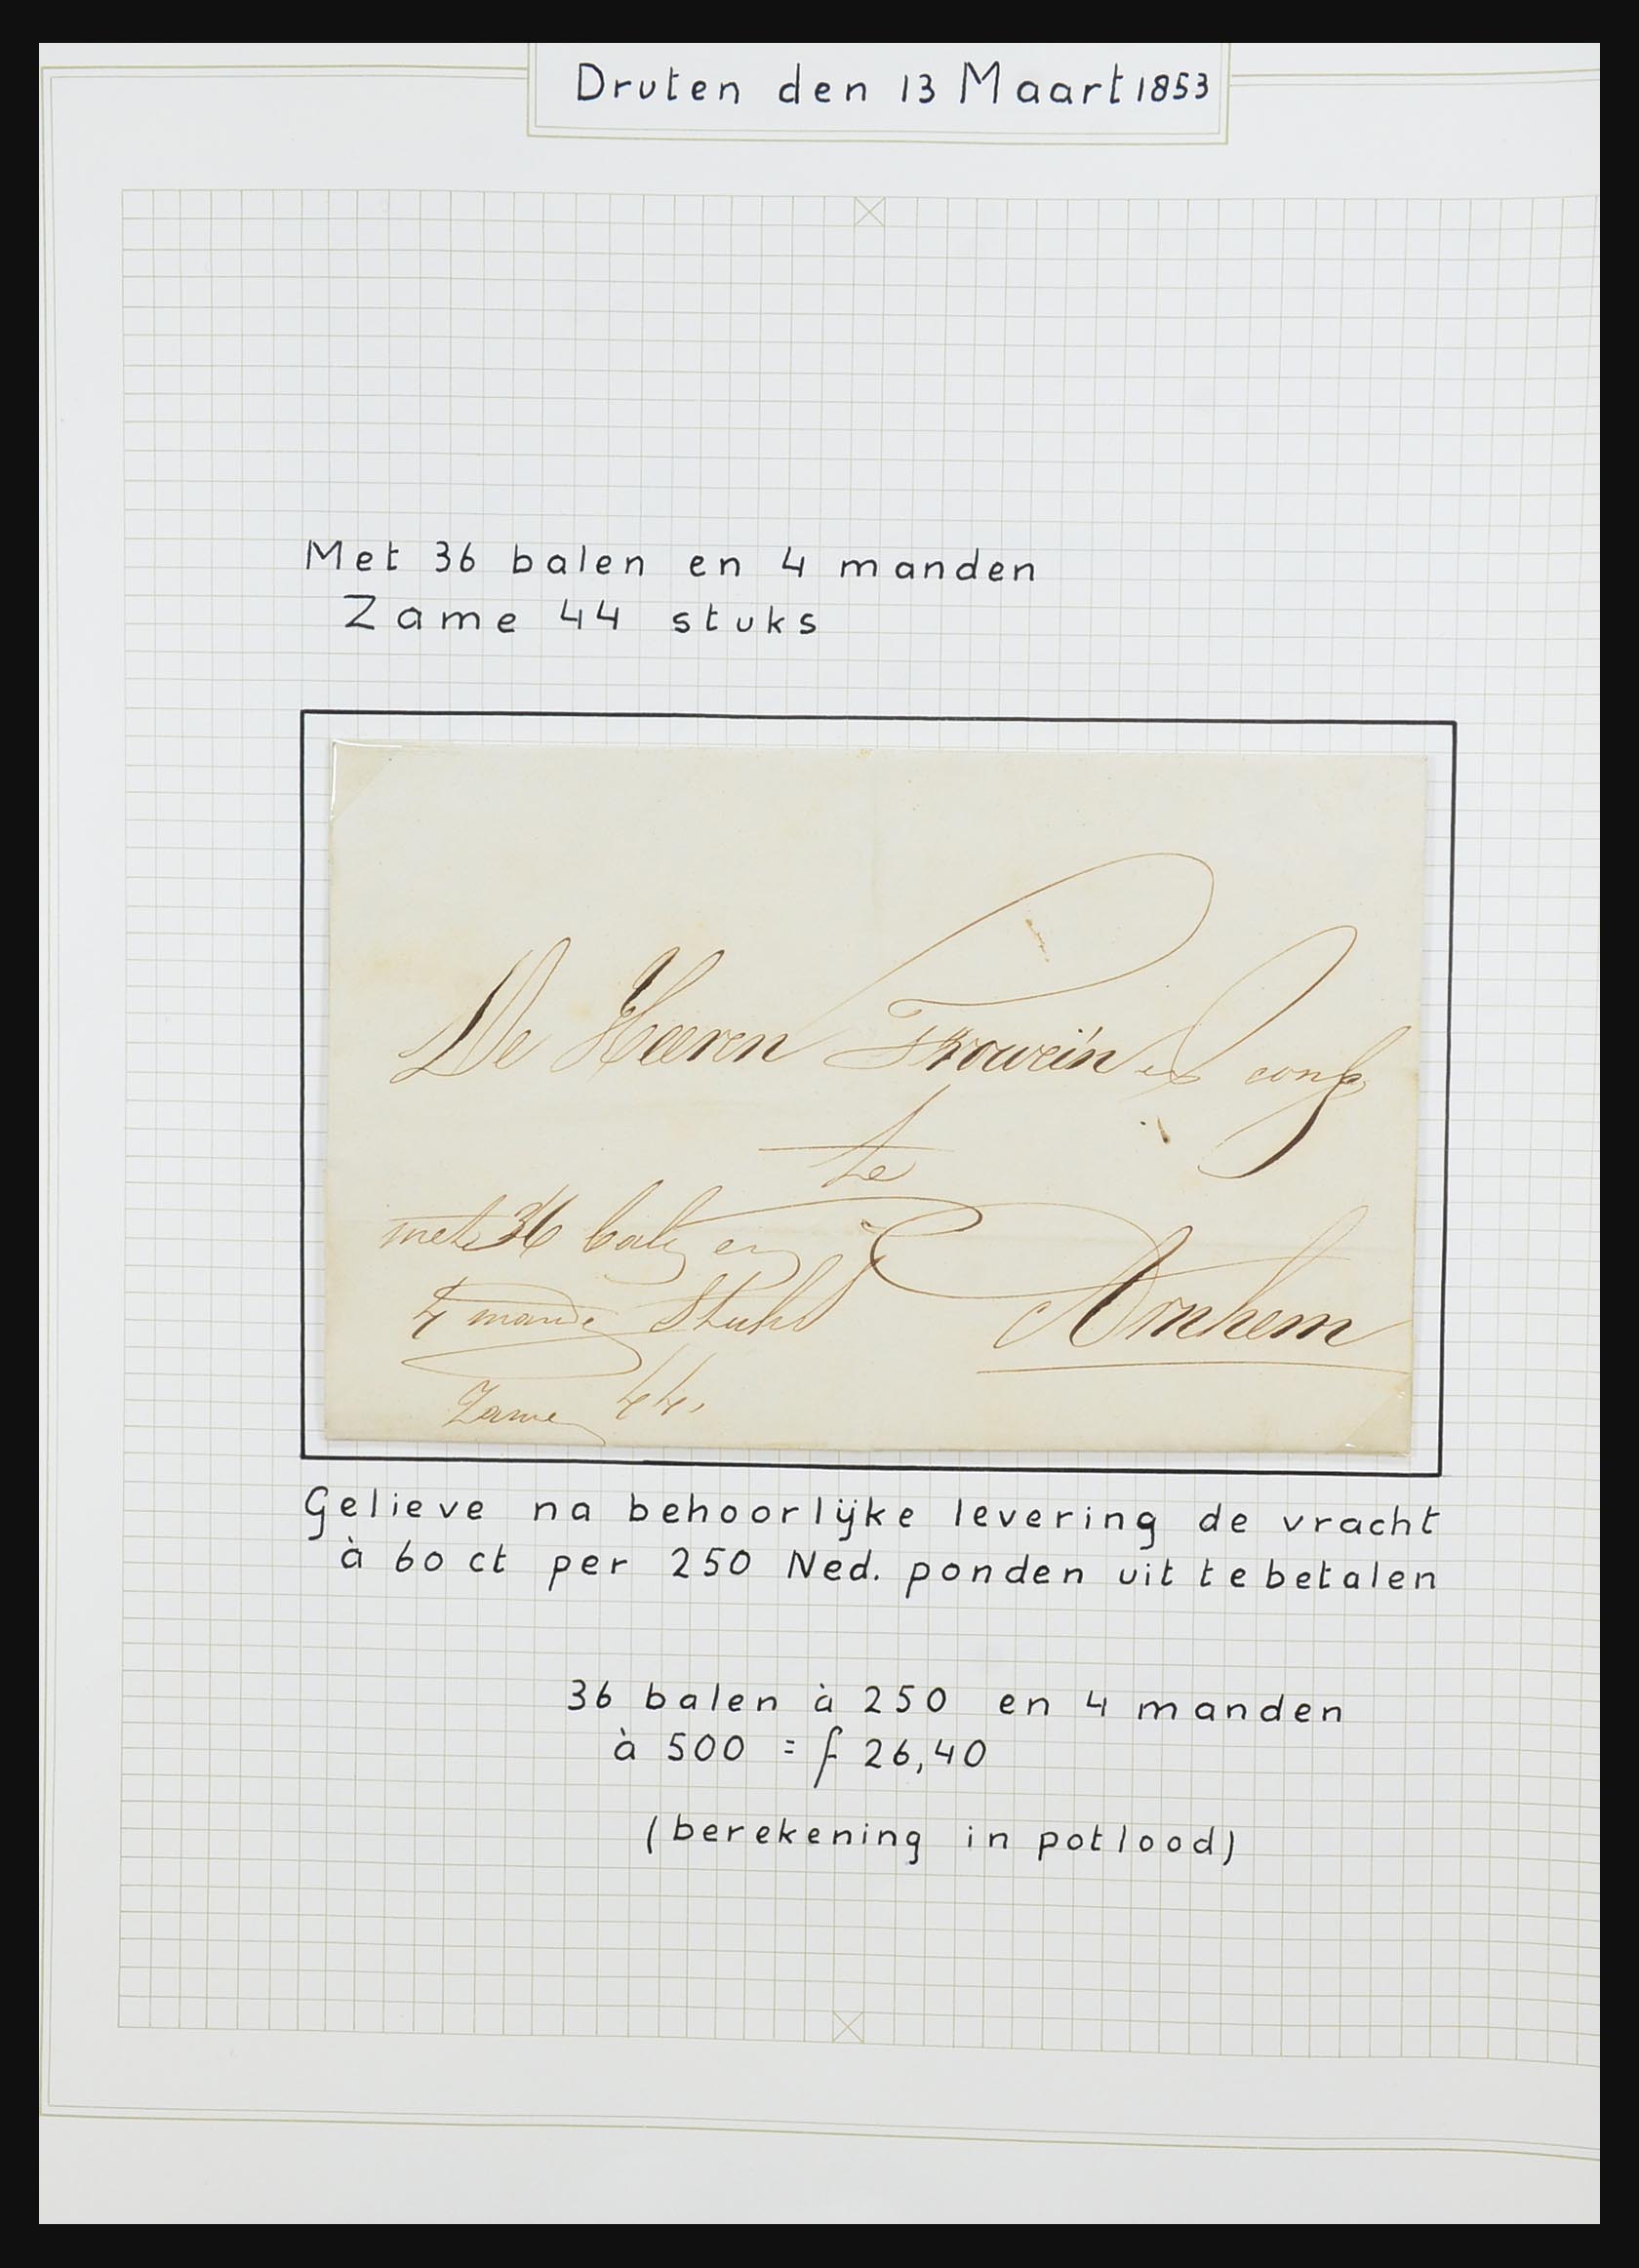 Druten den 13 Maart 1853
Met 36 balen en 4 manden
Zame 44 stuks
De Heeren Frowein en comp
te
met 36 bale en
4 mande Stuks
Arnhem
Zame 44,
Gelieve na behoorlijke levering de vracht
à 60 ct per 250 Ned. ponden uit te betalen
36 balen à 250 en 4 manden
à 500 = f 26,40
(berekening in potlood)